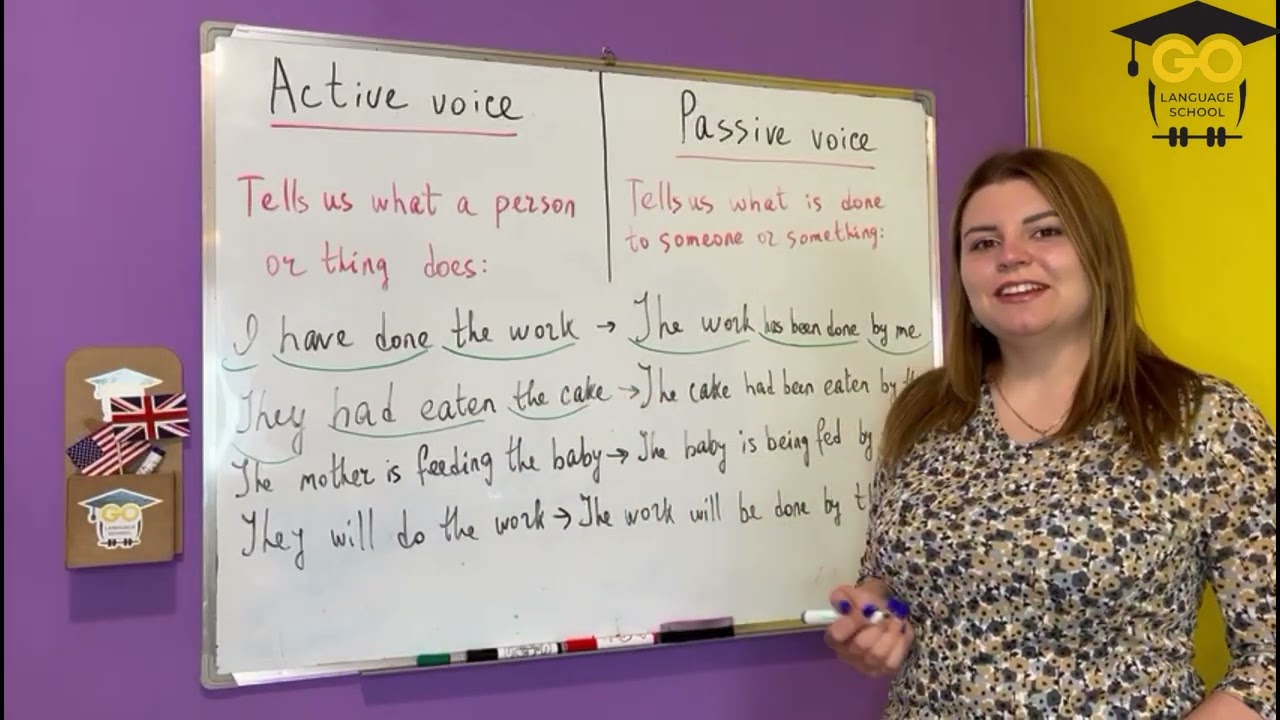 Active voice
Passive voice
Tells us what a person
or thing does:
Tells us what is done
to someone or something:
I have done the work → The work has been done by me
They had eaten the cake → The cake had been eaten by
The mother is feeding the baby → The baby is being fed by
They will do the work → The work will be done by
GO
LANGUAGE
SCHOOL
GO
LANGUAGE
SCHOOL